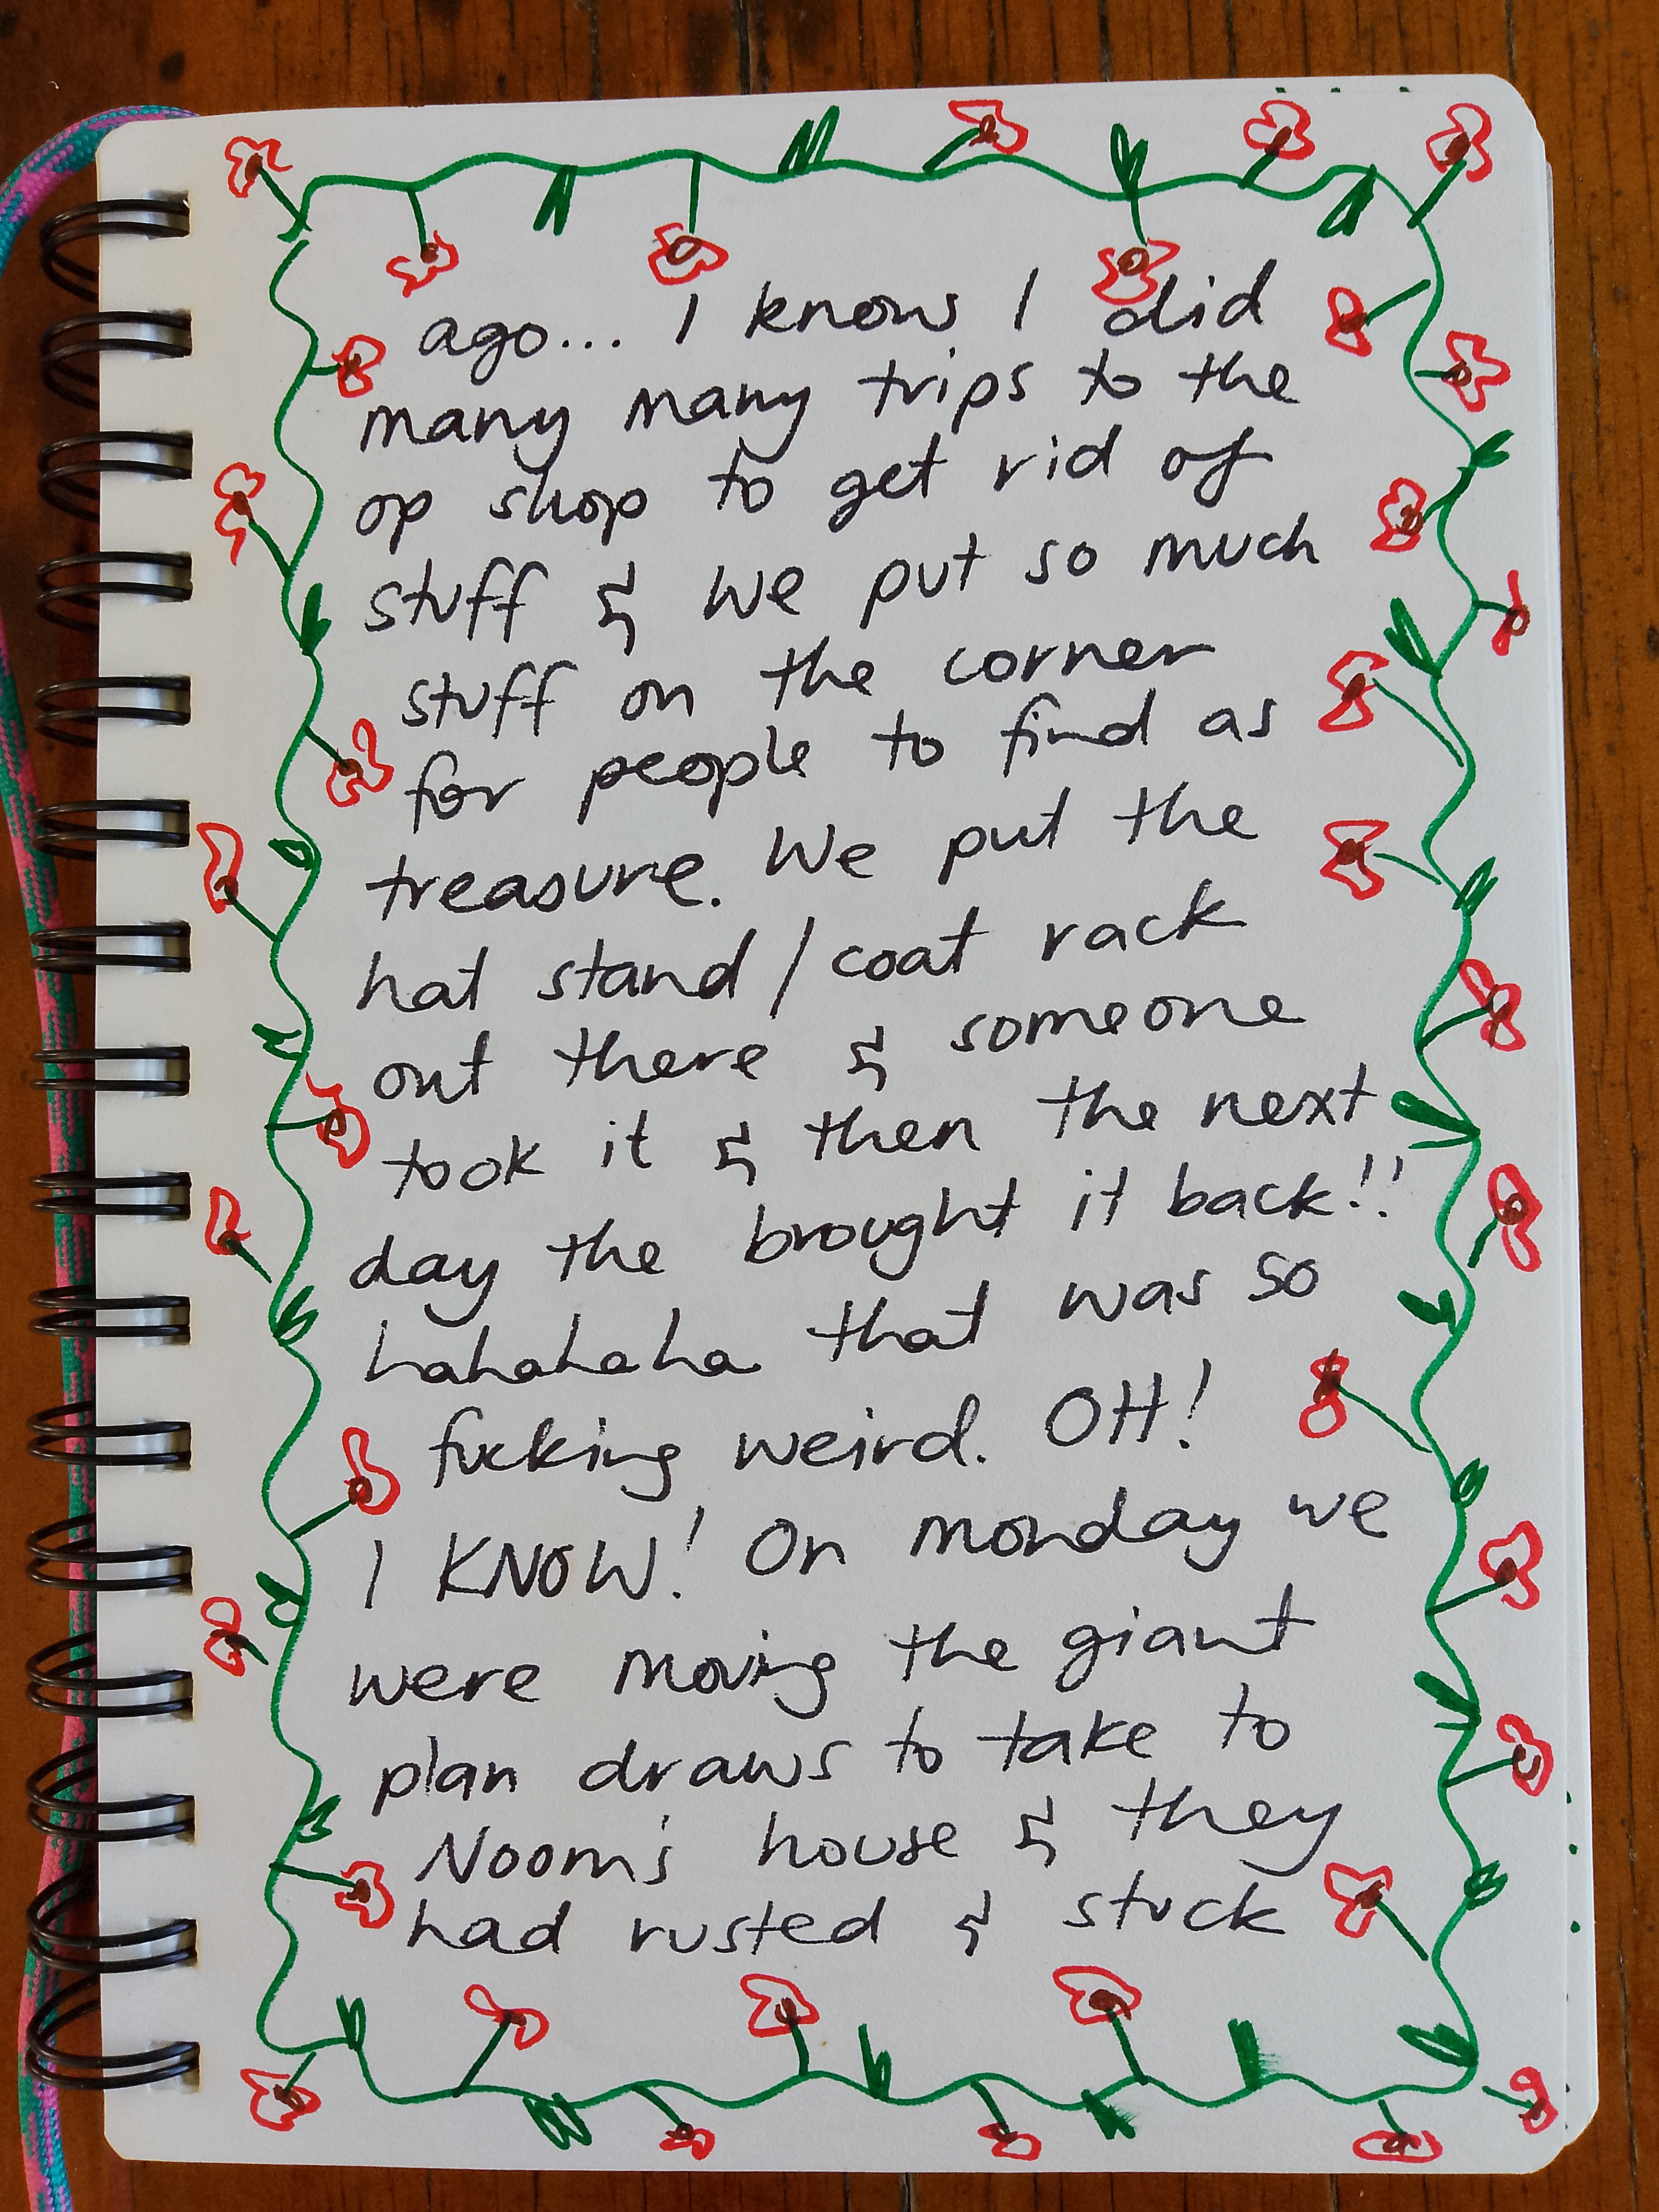 ago... I know I did
many many trips to the
op shop to get rid of
stuff & we put so much
stuff on the corner
for people to find as
treasure. We put the
hat stand / coat rack
out there & someone
took it & then the next
day the brought it back!!
hahahaha that was so
fucking weird. OH!
I KNOW! On monday we
were moving the giant
plan draws to take to
Noom's house & they
had rusted & stuck